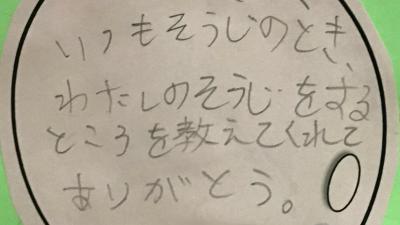 いつもそうじのとき、
わたしのそうじをする
ところを教えてくれて
ありがとう。